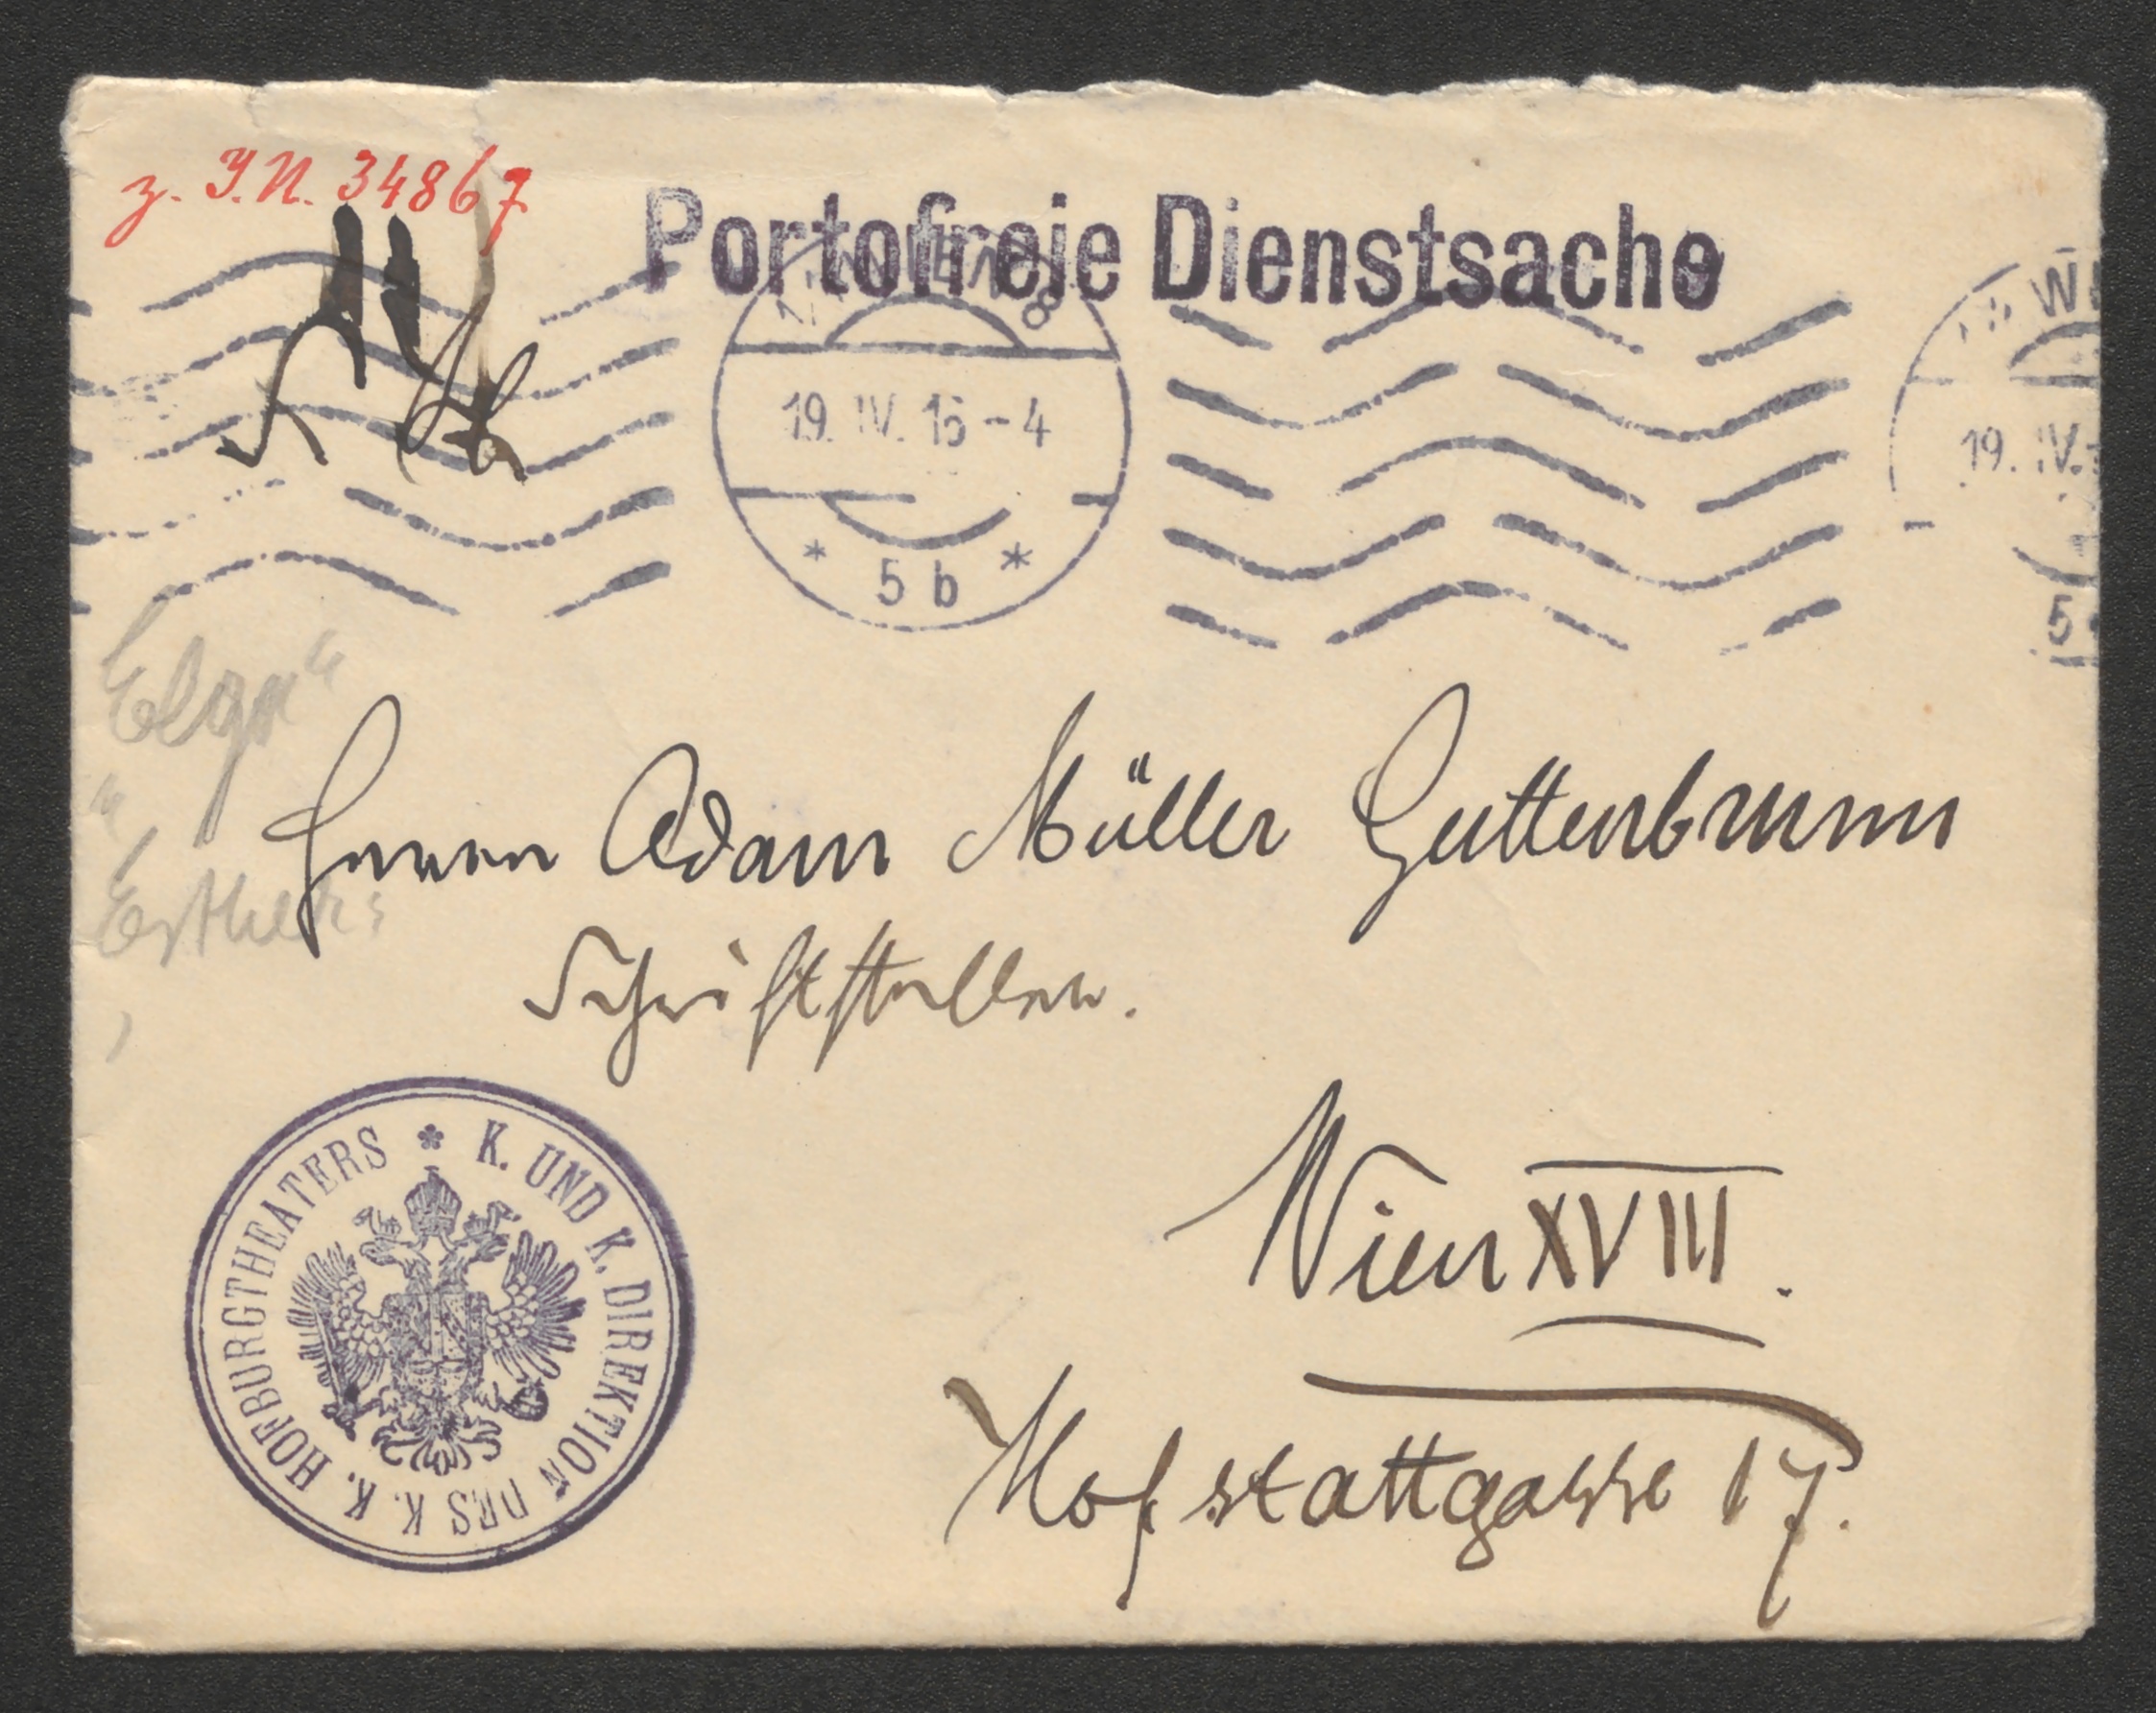 z. I.N. 34867
Portofreie Dienstsache
19. IV. 16 - 4
* 5 b *
WI
19. IV.
5
Elga"
"Esther
Herrn Adam Müller Guttenbrunn
Schriftsteller.
Wien XVIII.
Hofstattgasse 17.
K. UND K. DIREKTION DES K. K. HOFBURGTHEATERS *